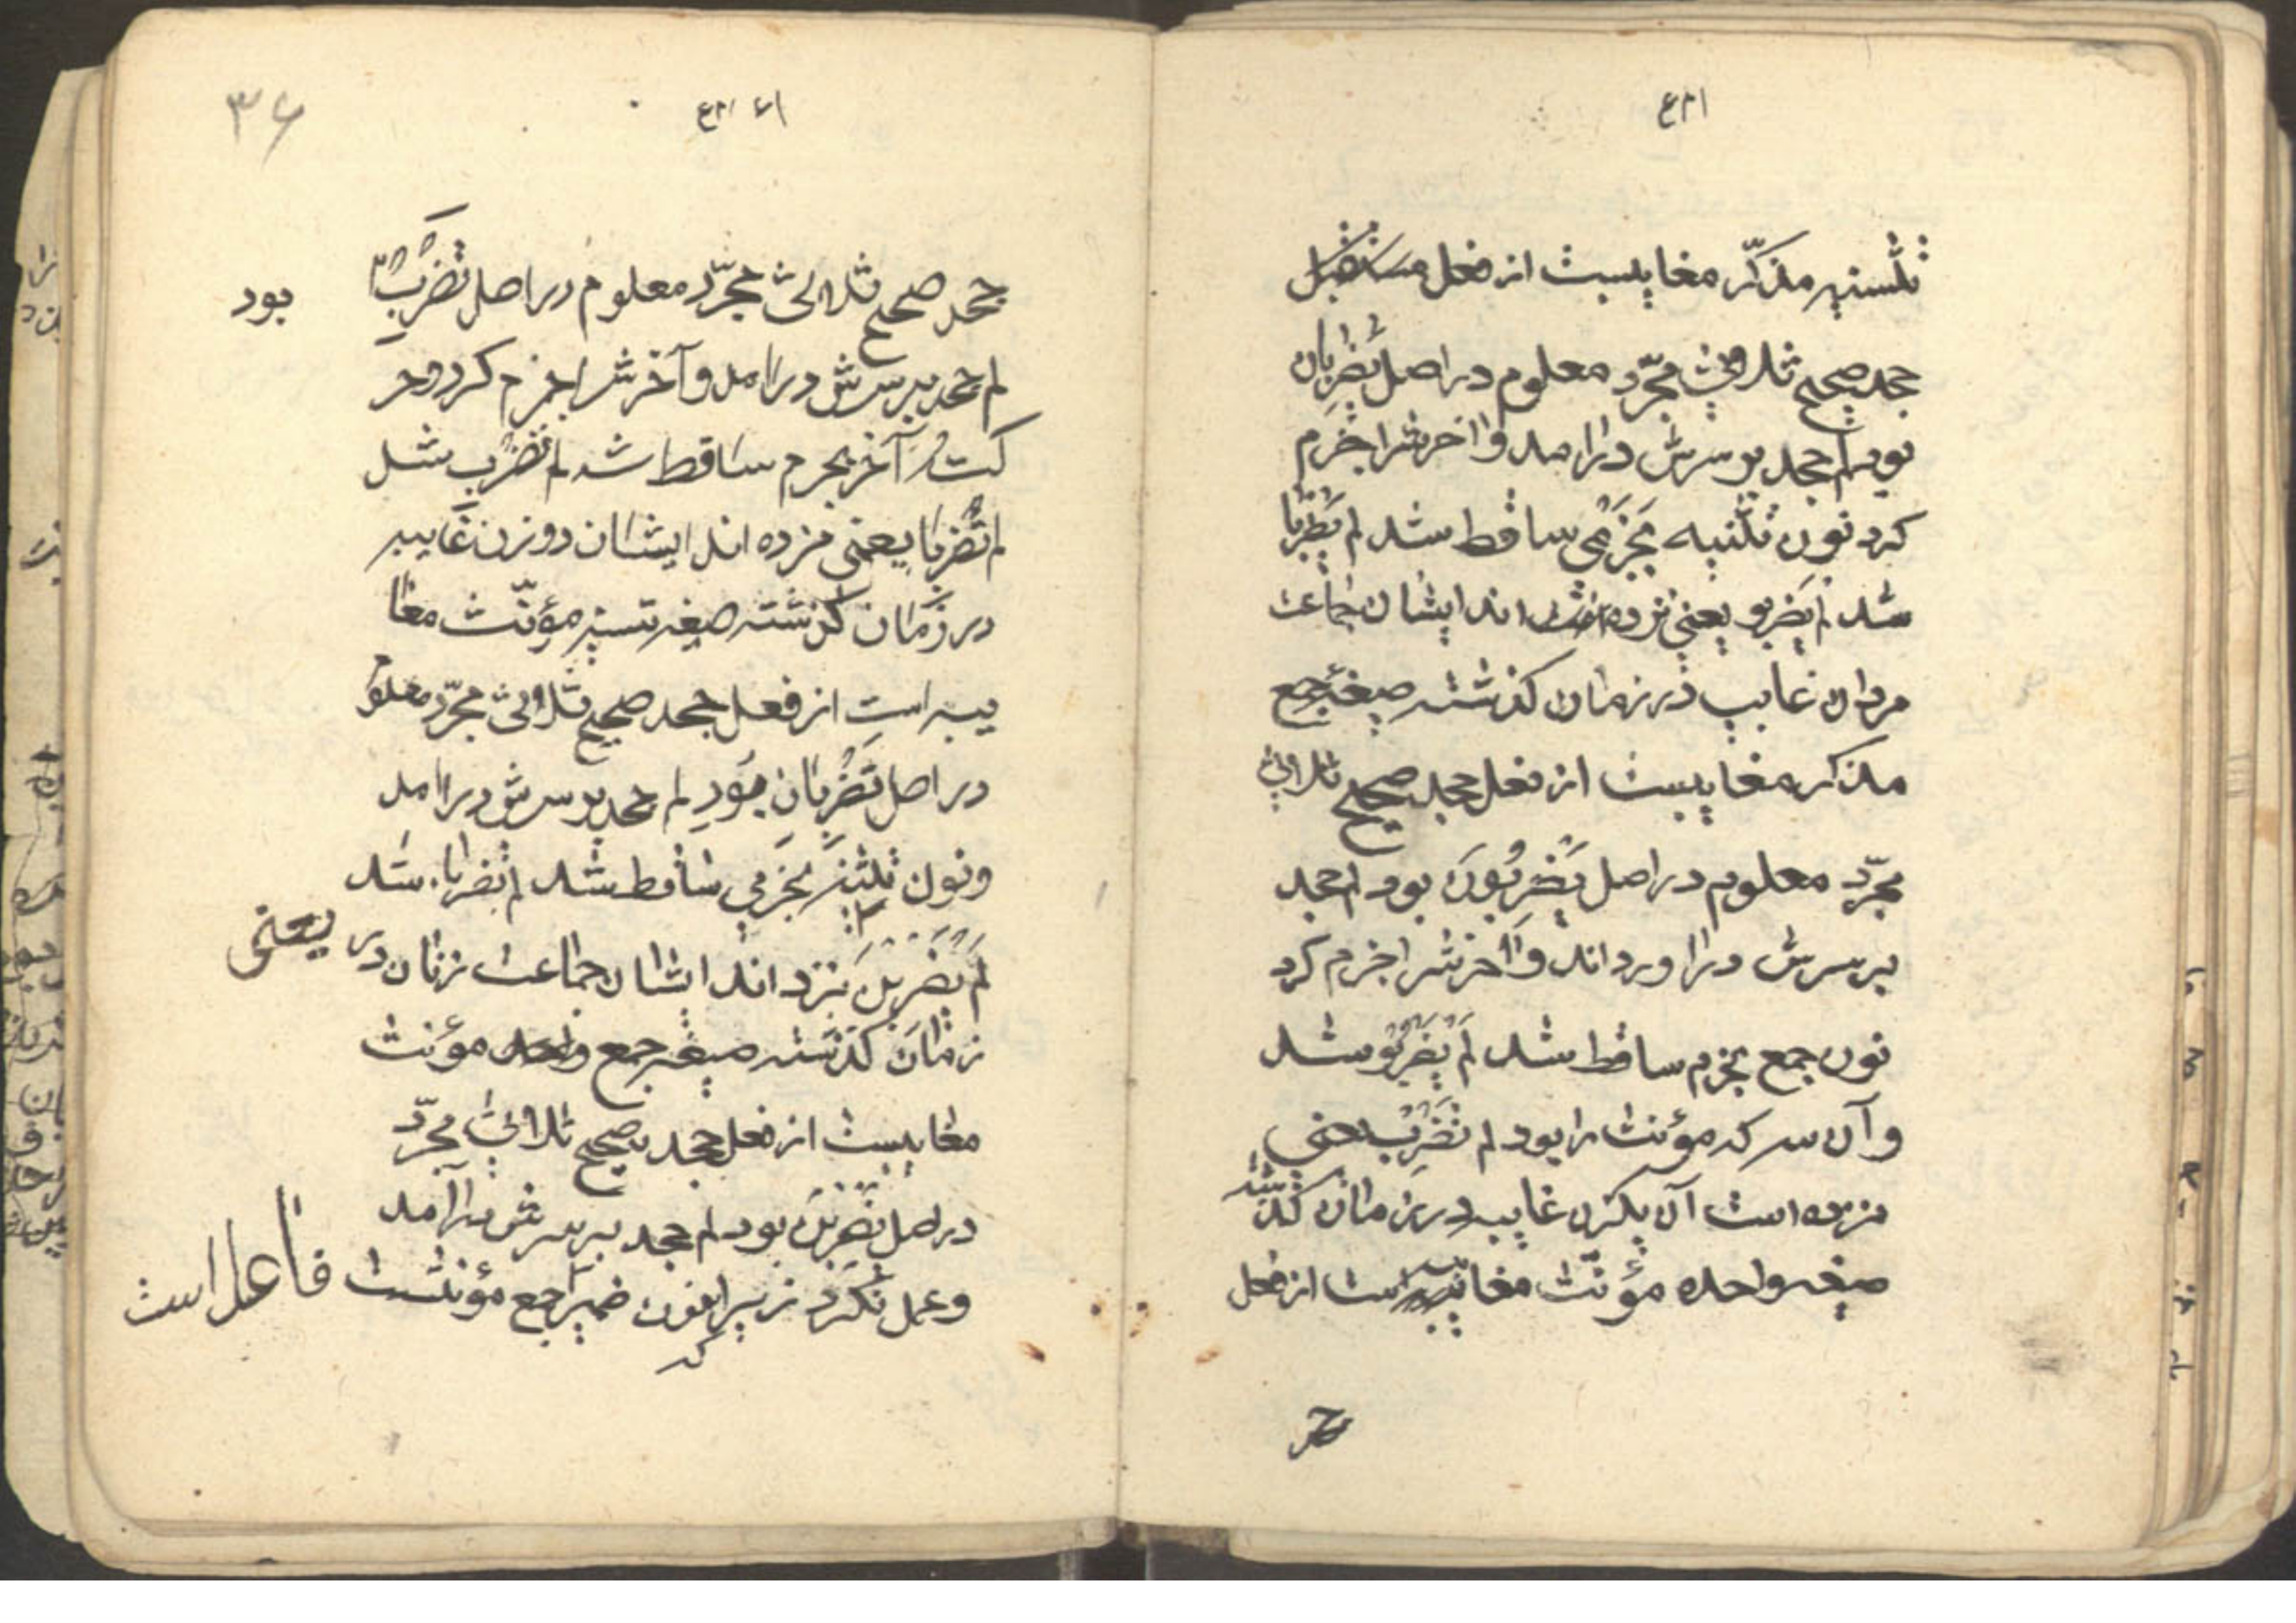 تلسنیه مذکّر مغایبست از فعل مستقبل
جحد صحیح ثلاثی مجرّد معلوم در اصل یَضْرِبان
بود لم جحد بر سرش درامد و اخرشرا جزم
کرد نون تثنیه بجزمی ساقط شد لم یَضْرِبا
شد لم یَضربو یعنی نزده اند ایشان جماعت
مردان غایب در زمان کذشته صیغهٔ جمع
مذکر مغایبست از فعل جحد صحیح ثلاثی
مجرّد معلوم در اصل یَضْرِبُونَ بود لم جحد
بر سرش دراورداند و اخرشرا جزم کرد
نون جمع بجزم ساقط شد لَم یَضْرِبُو شد
و آن سه که مؤنث را بود لم تَضْرِب یعنی
نزده است آن یکزن غایبه در زمان کذشته
صیغه واحده مؤنّث مغایبه است از فعل
۳۶
جحد صحیح ثلاثی مجرّد معلوم در اصل تَضْرِبُ بود
لم جحد بر سرش درامد و آخرشرا جزم کرد و حر
کت آخر بجرم ساقط شد لم تَضْرِب شد
لم تَضْرِبا یعنی نزده اند ایشان دوزن غایبه
در زمان کذشته صیغه تسنیه مؤنّث مغا
یبه است از فعل جحد صحیح ثلاثی مجرّد معلوم
در اصل تَضْرِبانِ بود لم جحد بر سرش درامد
و نون تثنیه بجزمی ساقط شد لم تضربا شد
لَم یَضْرِبْنَ نزد اند ایشان جماعت زنان در یعنی
زمان کذشته صیغه جمع مؤنث
مغایبست از فعل جحد صحیح ثلاثی مجرّد
در اصل یَضْرِبْنَ بود لم جحد بر سرش درآمد
و عمل نکرد زیرا که نون ضمیر جمع مؤنثست فاعل است